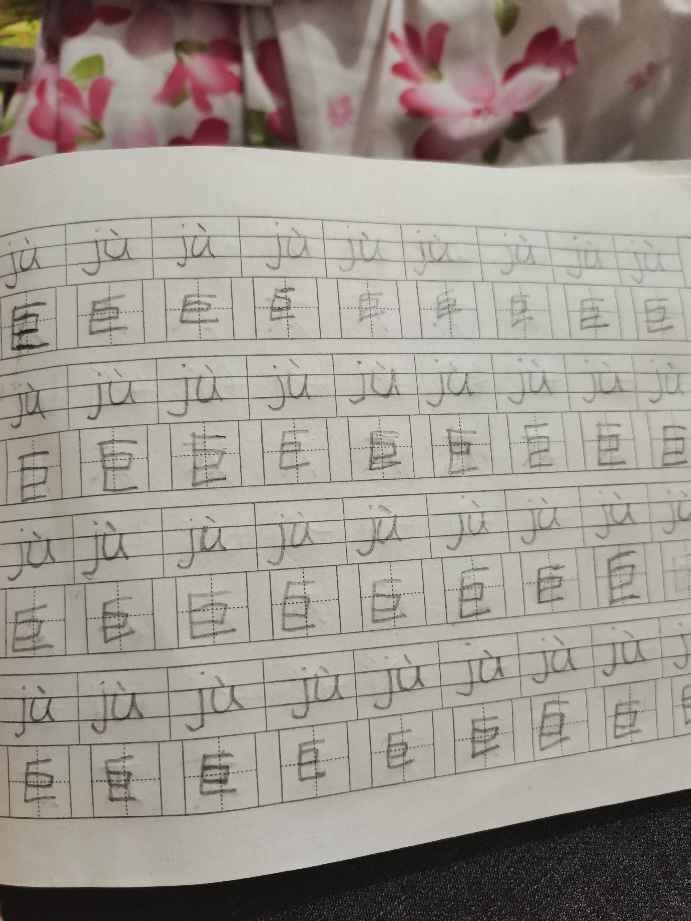 jù jù jù jù jù jù jù jù jù
巨 巨 巨 巨 巨 巨 巨 巨 巨
jù jù jù jù jù jù jù jù jù
巨 巨 巨 巨 巨 巨 巨 巨 巨
jù jù jù jù jù jù jù jù jù
巨 巨 巨 巨 巨 巨 巨 巨
jù jù jù jù jù jù jù jù
巨 巨 巨 巨 巨 巨 巨 巨